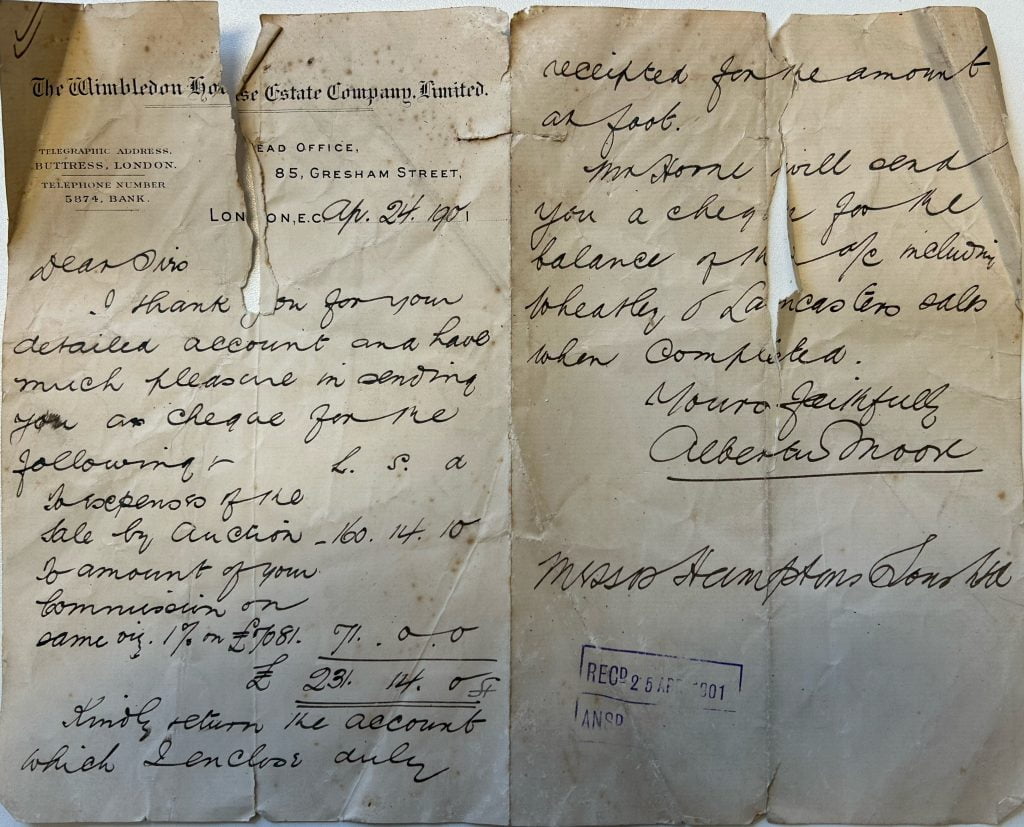 The Wimbledon House Estate Company, Limited.
TELEGRAPHIC ADDRESS,
BUTTRESS, LONDON.
TELEPHONE NUMBER
5874, BANK.
EAD OFFICE,
85, GRESHAM STREET,
LONDON, E.C. Ap. 24. 1901
Dear Sirs
I thank you for your
detailed account and have
much pleasure in sending
you a cheque for the
following :-
L. S. d
To expenses of the
Sale by Auction - 160. 14. 10
To amount of your
Commission on
same viz. 1% on £7081. 71. 0 0
£ 231. 14. 0
Kindly return the account
which I enclose duly
receipted for the amount
at foot.
Mr Horne will send
you a cheque for the
balance of the a/c including
Wheatley & Lancasters sales
when completed.
Yours faithfully
Messrs Hamptons & Sons Ltd
RECD 25 APR 1901
ANSD